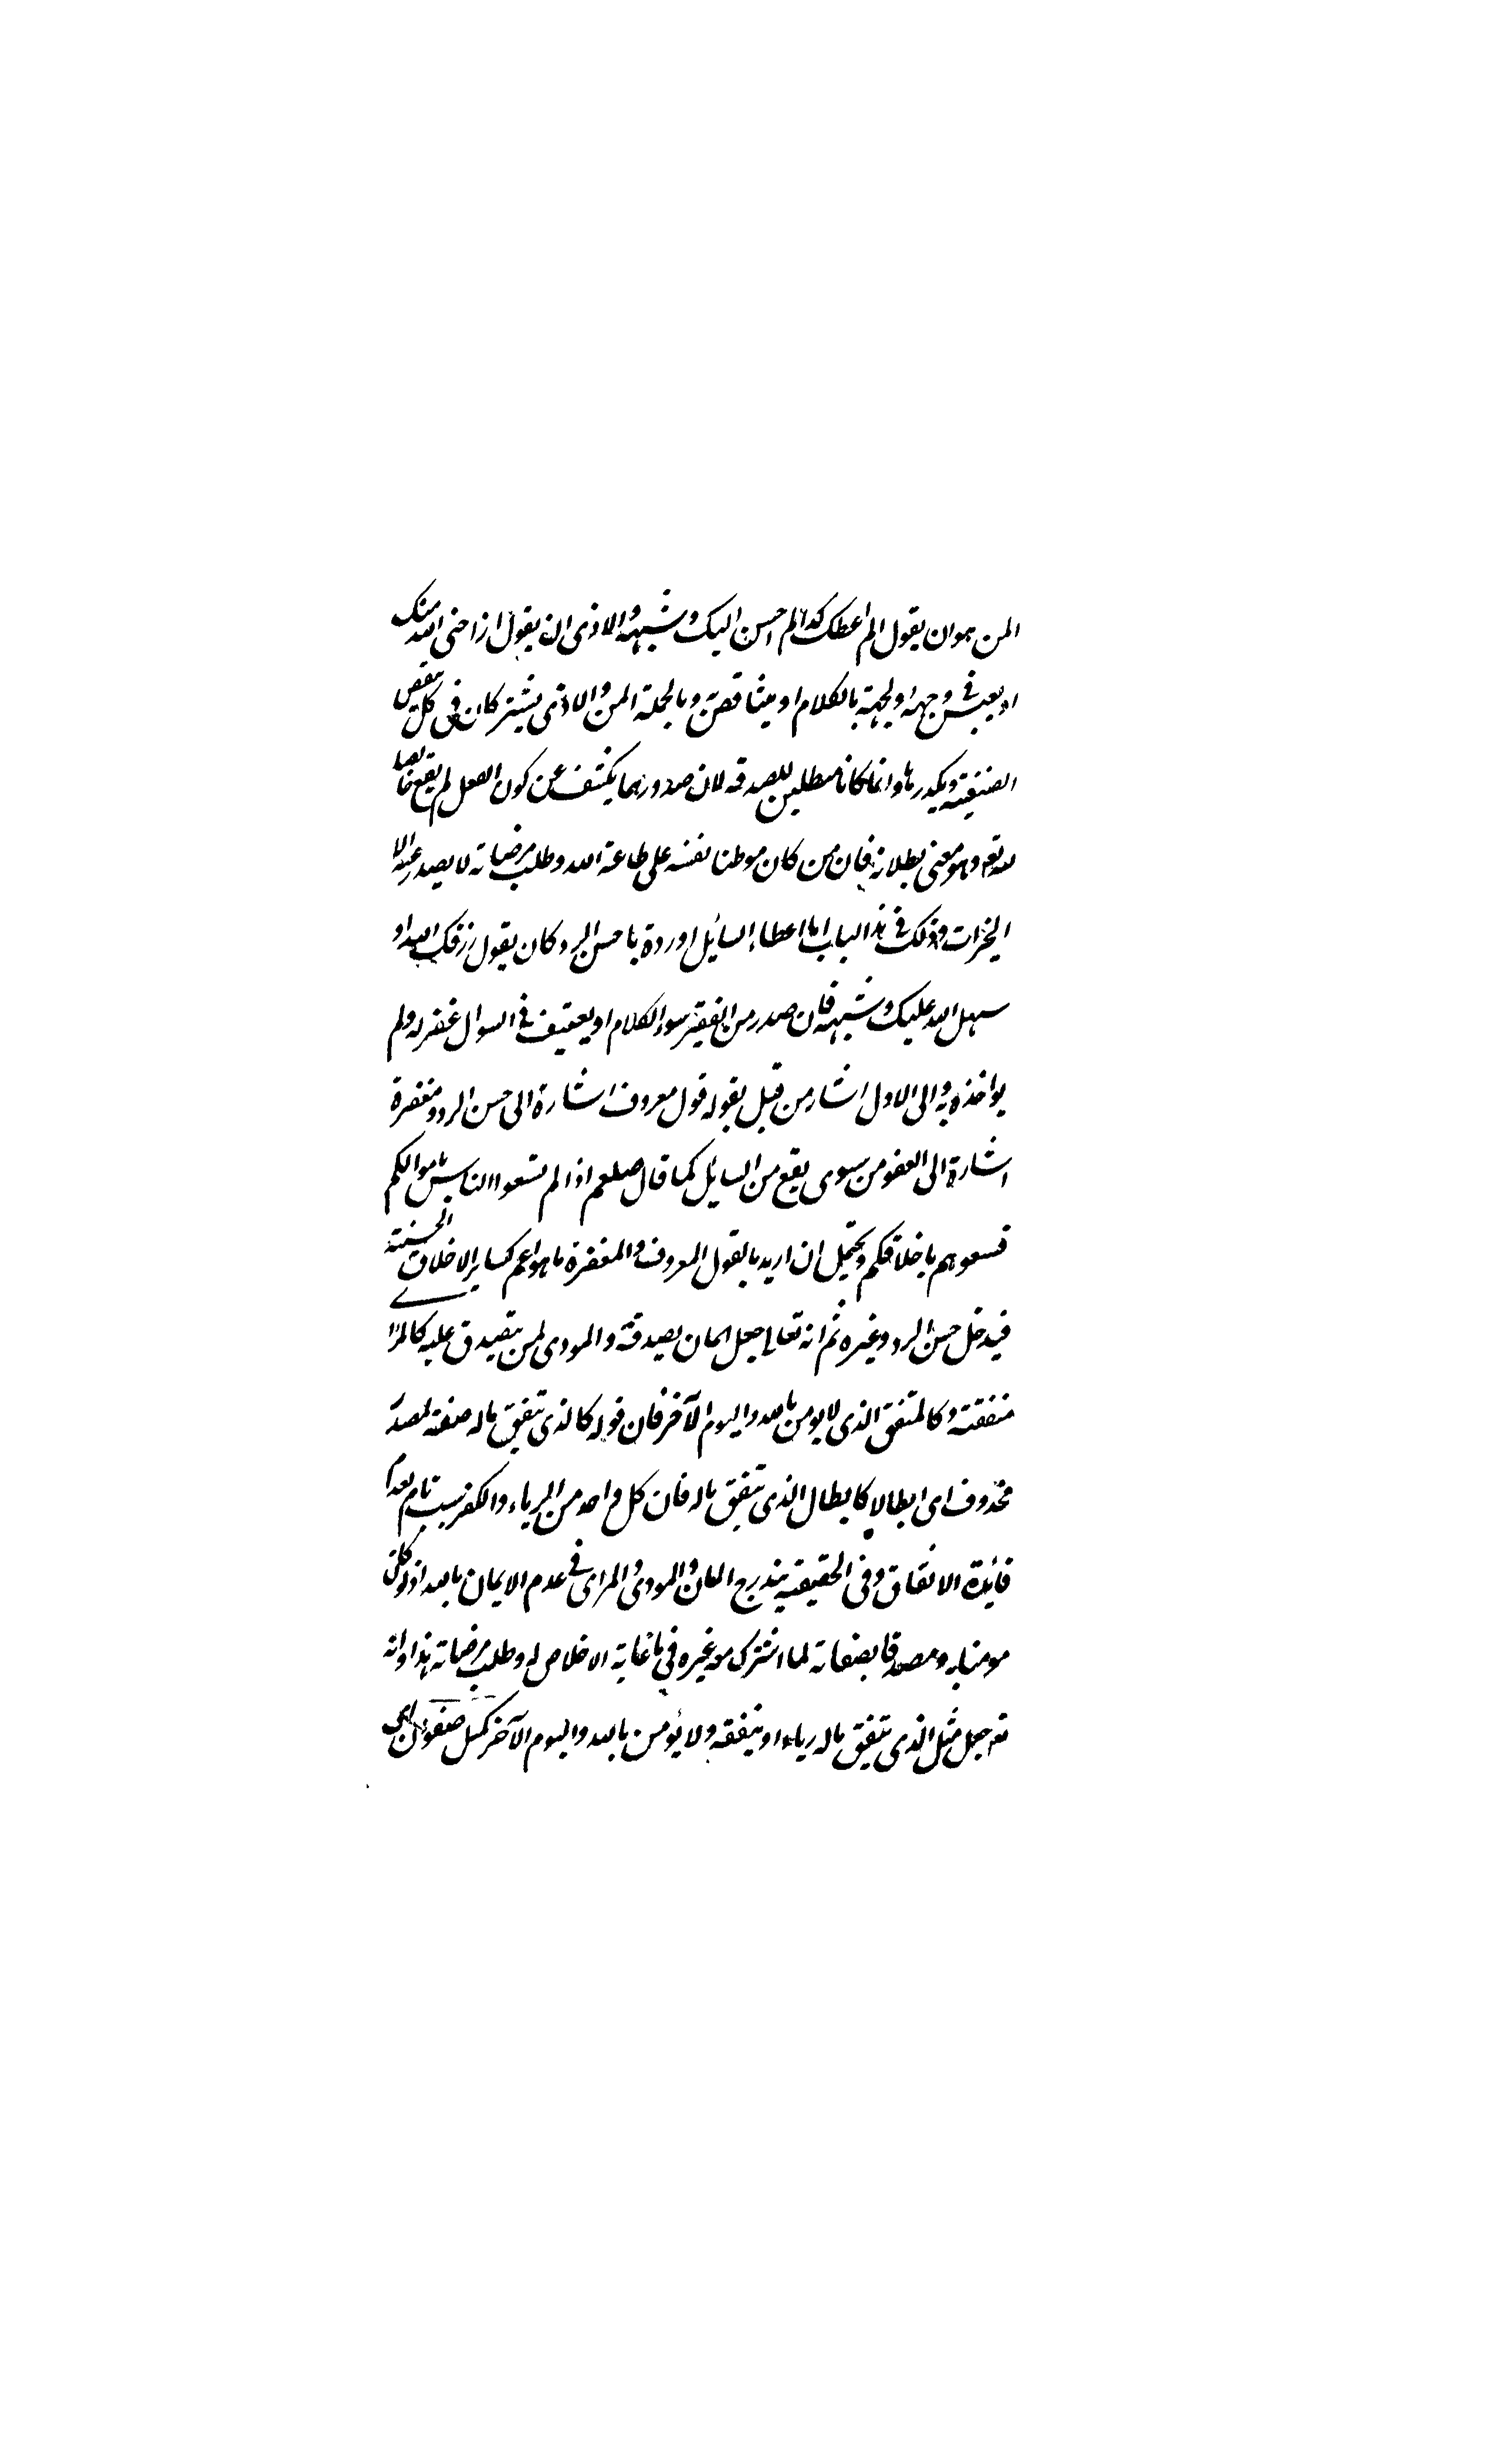 المن هو ان يقول الم اعطك كذا الم احسن اليك وشبهه والاذى ان يقول اراحنى الله منك
او يعبس فى وجهه او يجبهه بالكلام او وبالجملة المن والاذى يشتركان فى كل ينقص
الصنيعة ويكدرها وانما كانا مبطلين للصدقه لان صدورهما يكشف عن كون الفعل لم يقع خالصا
لله تعه وهو معنى بطلانه فان من كان موطنا نفسه على طاعة الله وطلب مرضاته لا يصدر عنه الا
الخيرات وذلك فى هذا الباب اما اعطاء السائل او رده باحسن الرد كان يقول رزقك الله او
سهل الله عليك وشبهه فان صدر من الفقير سوء الكلام او فى السوال غفر له ولم
يواخذه به والى الاول اشار من قبل بقوله قول معروف اشارة الى حسن الرد ومغفرة
اشارة الى العفو من سوى يقع من السايل كما قال صلعم اذا لم تسعوا الناس باموالكم
فسعوهم باخلاقكم ويحتمل ان اريد بالقول المعروف والمغفرة ما هو اعم كساير الاخلاق الحسنة
فيدخل حسن الرد وغيره ثم انه تعالى جعل المان بصدقته والموذى لمن يتصدق عليه كالمرا
منفقته وكالمنفق الذى لا يومن بالله واليوم الآخر فان قوله كالذى ينفق ماله صفة لمصدر
محذوف اى ابطالا كابطال الذى ينفق ماله فان كل واحد من الرياء والكفر سبب تام لعدم
فائدة الانفاق وفى الحقيقة يندرج المان والموذى والمراى فى عدم الايمان بالله اذ لو كان
مومنا به ومصدقا بصفاته لما اشترك معه غيره فى ما غاية الاخلاص له وطلب مرضاته هذا وانه
تعه جعل مثل الذى ينفق ماله رياء او ينفقه ولا يؤمن بالله واليوم الآخر كمثل صفوان اى